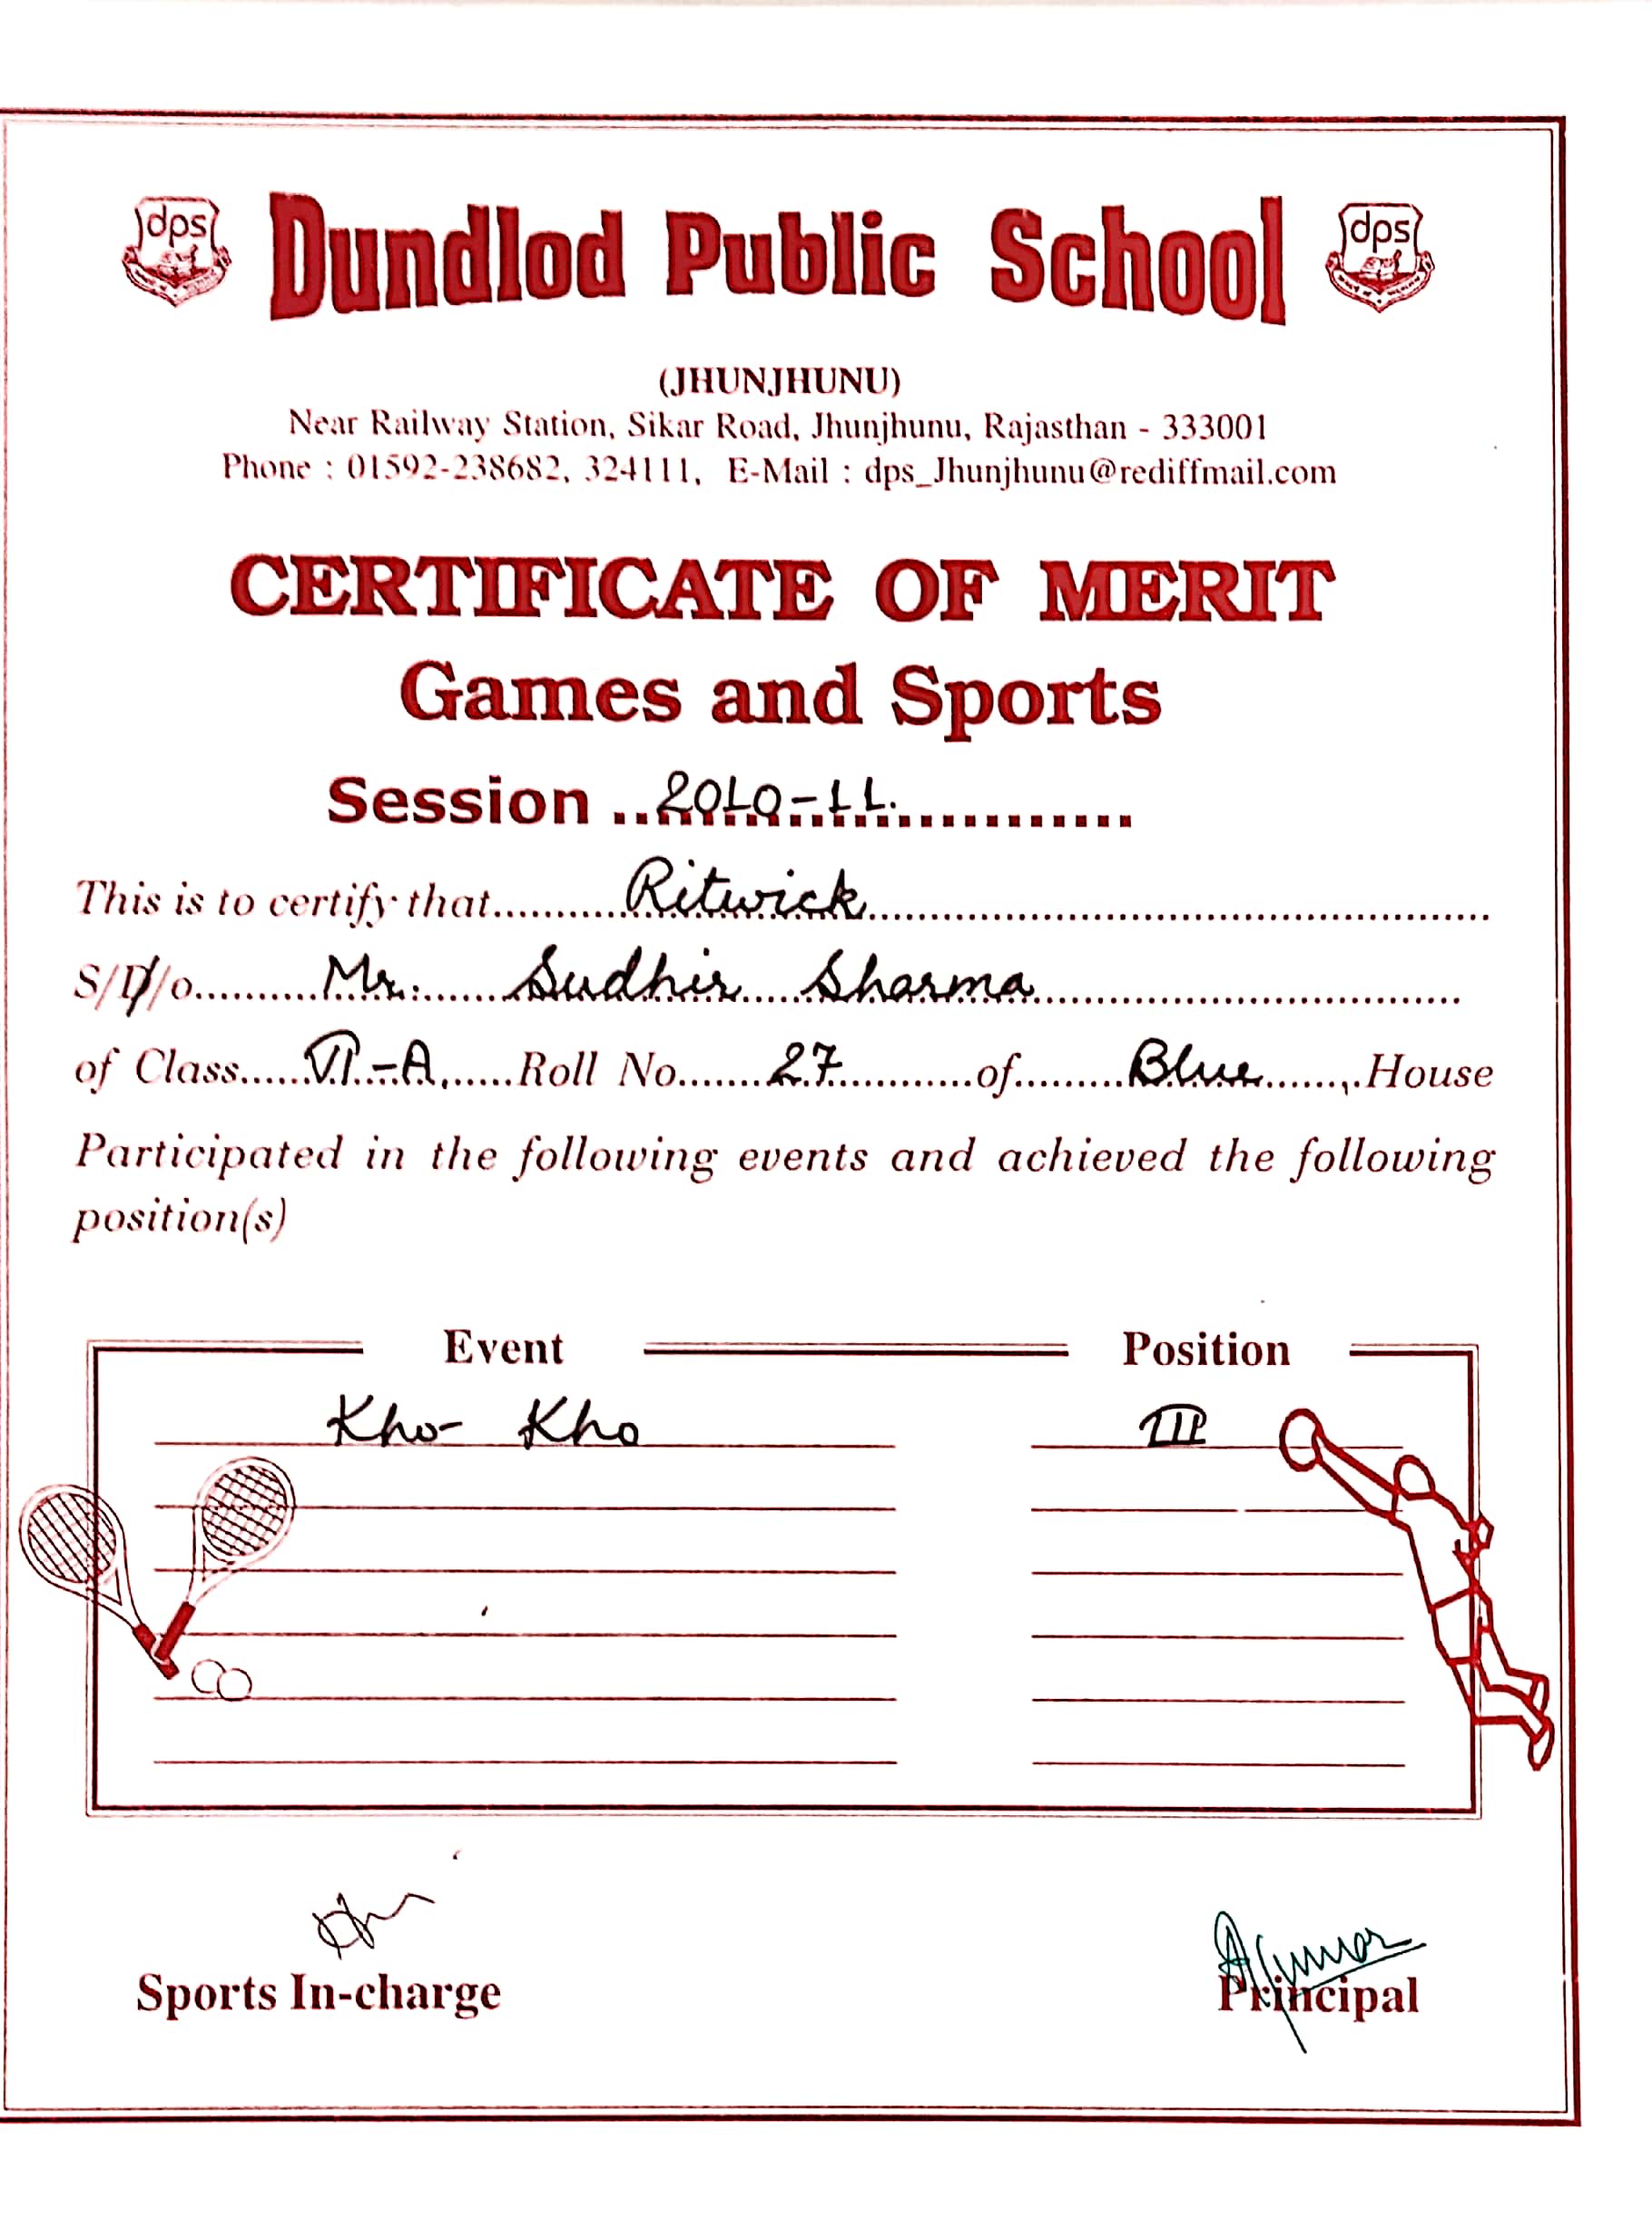 dps Dundlod Public School dps
(JHUNJHUNU)
Near Railway Station, Sikar Road, Jhunjhunu, Rajasthan - 333001
Phone : 01592-238682, 324111, E-Mail : dps_Jhunjhunu@rediffmail.com
CERTIFICATE OF MERIT
Games and Sports
Session ..2010-11.............
This is to certify that..........Ritwick..........
S/D/o..........Mr. Sudhir Sharma..........
of Class......VI-A......Roll No.......27..........of.........Blue.......House
Participated in the following events and achieved the following
position(s)
Event Position
Kho-Kho III
Sports In-charge Principal